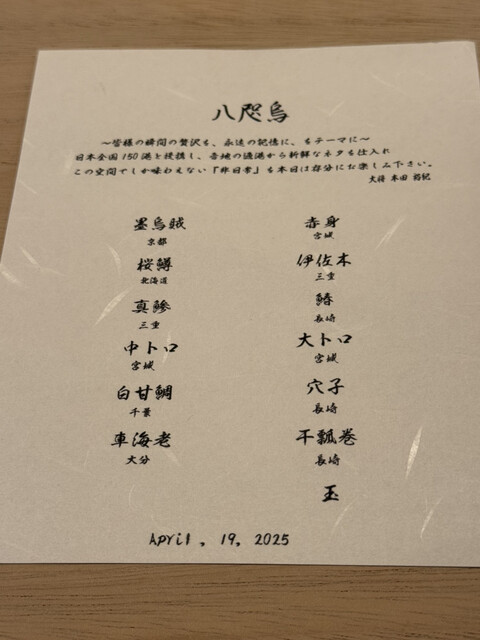 八咫烏
〜皆様の瞬間の贅沢を、永遠の記憶に、をテーマに〜
日本全国150港と提携し、各地の漁港から新鮮なネタを仕入れ
この空間でしか味わえない「非日常」を本日は存分にお楽しみ下さい。
大将 本田 裕紀
墨烏賊
京都
桜鱒
北海道
真鯵
三重
中トロ
宮城
白甘鯛
千葉
車海老
大分
赤身
宮城
伊佐木
三重
鰆
長崎
大トロ
宮城
穴子
長崎
干瓢巻
長崎
玉
April, 19, 2025